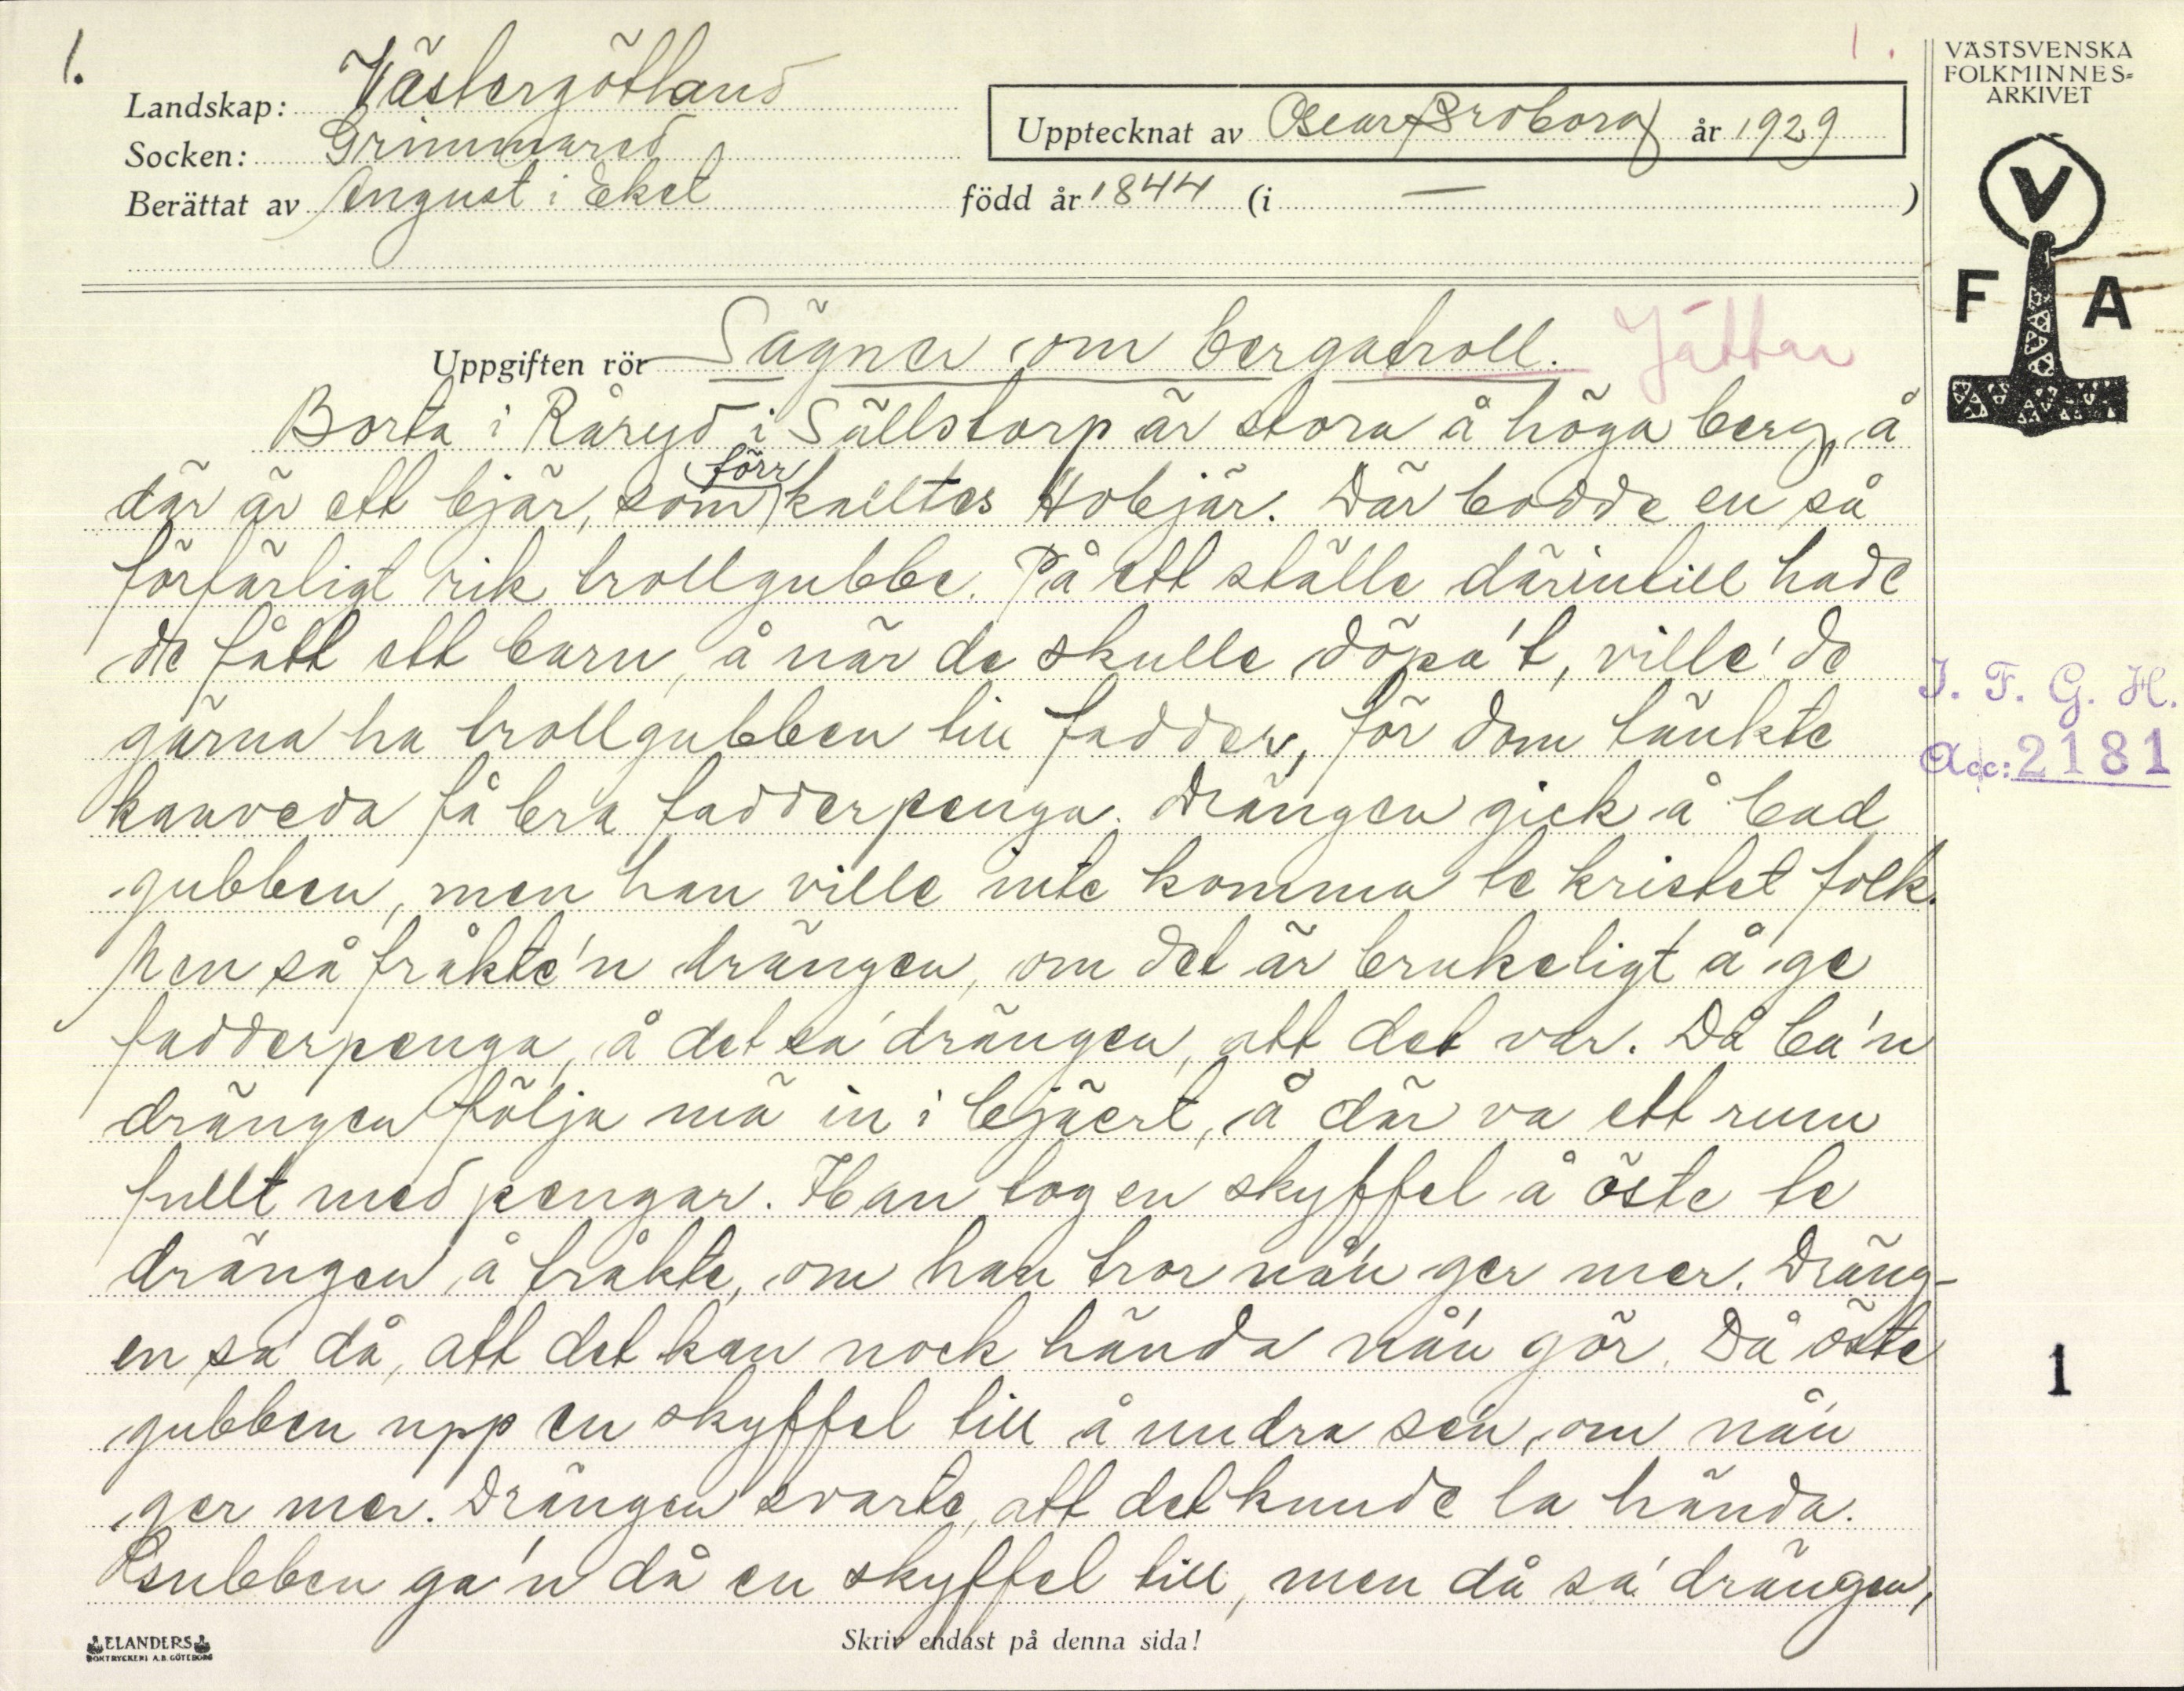 1.
1.
Landskap: Västergötland
Socken: Grimmared
Berättat av August i Eket
Upptecknat av Oscar Broborg år 1929
född år 1844 (i — )
VÄSTSVENSKA
FOLKMINNES-
ARKIVET
V
F A
Uppgiften rör Sägner om bergatroll. Jättar
Borta i Råryd i Sällstorp är stora å höga berg, å
där är ett bjär, som förr kalltes Hobjär. Där bodde en så
förfärligt rik trollgubbe. På ett ställe därintill hade
de fått ett barn, å när de skulle döpa't, ville' de
gärna ha trollgubben till fadder, för dom tänkte
kanveda få bra fadderpenga. Drängen gick å bad
gubben, men han ville inte komma te kristet folk.
Men så fråkte'n drängen, om det är brukeligt å ge
fadderpenga, å det sa' drängen, att det var. Då ba'n
drängen följa mä in i bjäert, å där va ett rum
fullt med pengar. Han tog en skyffel å öste te
drängen å fråkte, om han tror nå'n ger mer. Dräng-
en sa' då, att det kan nock hända nå'n gör. Då öste
gubben upp en skyffel till å undra se'n, om nå'n
ger mer. Drängen svarte, att det kunde la hända.
Gubben ga'n då en skyffel till, men då sa' drängen,
I. F. G. H.
Acc: 2181
1
ELANDERS
BOKTRYCKERI A.B. GÖTEBORG
Skriv endast på denna sida!